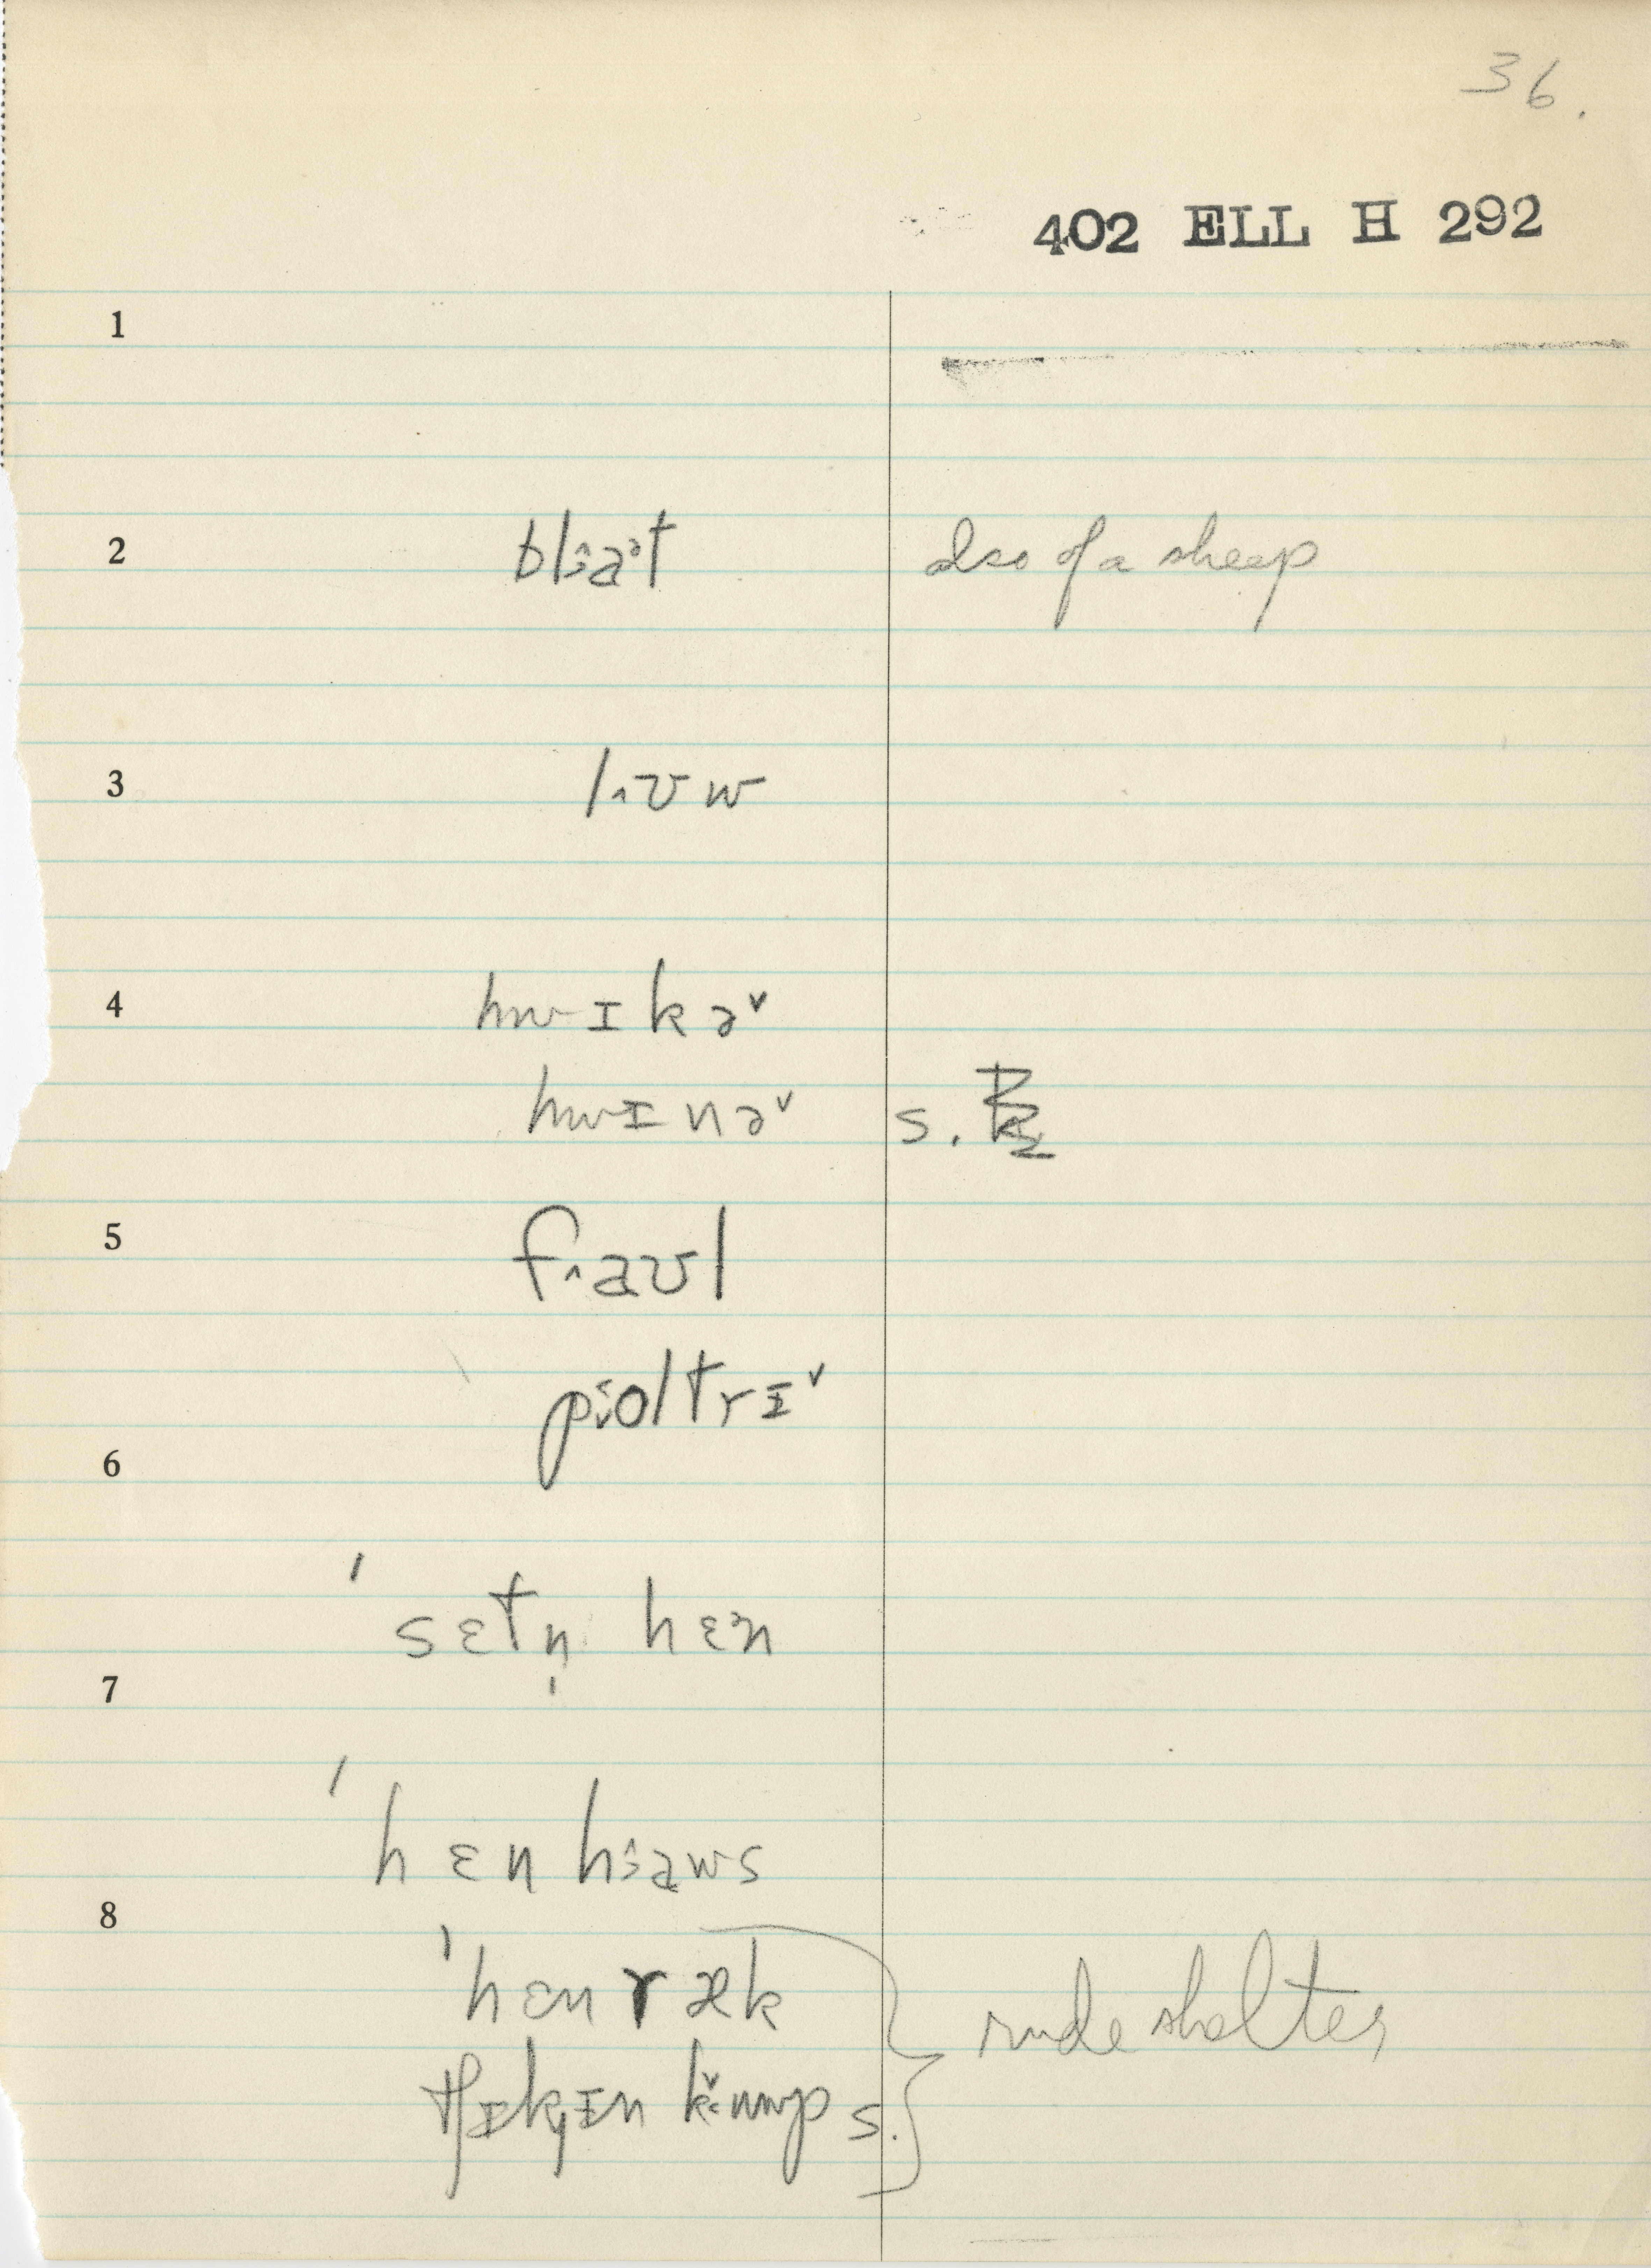 36.
402 ELL H 292
1
2 bl᷾·aᵊt also of a sheep
3 l·ʊw
4 hwɪkə˅
hwɪnə˅ s.
5 f·aʊl
poltrɪ˅
6
ˈsɛtn̩ hɛᵊn
7
ˈhɛn h·aws
8
ˈhɛn ræk
tʃɪkɪn ku·mp s. } rude shelter